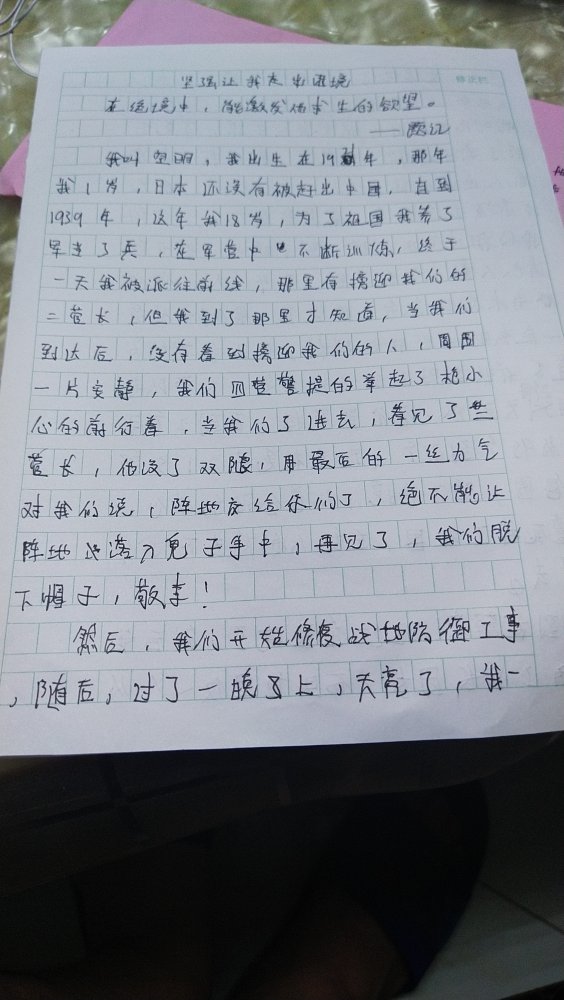 坚强让我走出困境
在绝境中，能激发你求生的欲望。
——题记
我叫  明，我出生在19  年，那年
我1岁，日本还没有被赶出中国，直到
1939年，这年我18岁，为了祖国我参了
军当了兵，在军营中 不断训练，终于
一天我被派往前线，那里有接迎我们的
二营长，但我到了那里才知道，当我们
到达后，没有看到接迎我们的人，周围
一片安静，我们四 警提的举起了枪小
心的前行着，当我们了进去，看见了
营长，他没了双腿，用最后的一丝力气
对我们说，阵地交给你们了，绝不能让
阵地 落入鬼子手中，再见了，我们脱
下帽子，敬
然后，我们开始修复战地防御工事
，随后，过了一晚 上，天亮了，我一